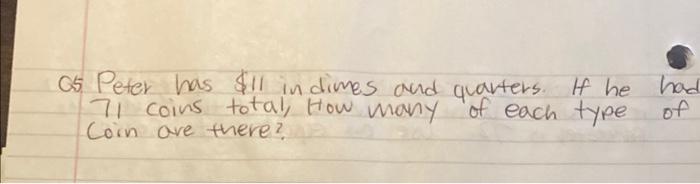 Q5 Peter has $11 in dimes and quarters. If he had
71 coins total, How many of each type of
Coin are there?